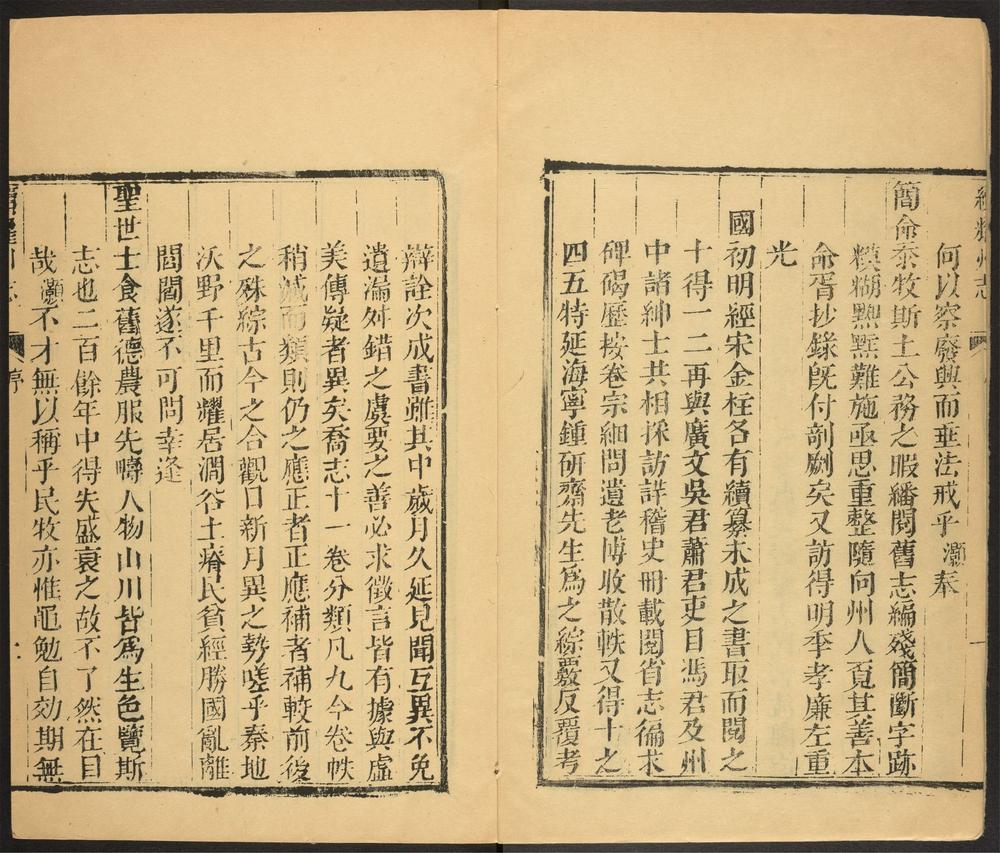 續耀州志
何以察廢興而垂法戒乎灝奉
簡命泰牧斯土公務之暇繙閱舊志編殘簡斷字跡
糢糊黑點黑黑難施亟思重整隨向州人覓其善本
命胥抄錄旣付剞劂矣又訪得明季孝廉左重
光
國初明經宋金柱各有續纂未成之書取而閱之
十得一二再與廣文吳君蕭君吏目馮君及州
中諸紳士共相採訪詳稽史冊載閱省志徧求
碑碣歷按卷宗細問遺老博收散軼又得十之
四五特延海寧鍾研齋先生爲之綜覈反覆考
辯詮次成書雖其中歲月久延見聞互異不免
遺漏舛錯之虞要之善必求徵言皆有據與虛
美傳疑者異矣喬志十一卷分類凡九今卷帙
稍減而類則仍之應正者正應補者補較前後
之殊綜古今之合觀日新月異之勢嗟乎秦地
沃野千里而耀居澗谷土瘠民貧經勝國亂離
閭閻遂不可問幸逢
聖世士食舊德農服先疇人物山川皆爲生色覽斯
志也二百餘年中得失盛衰之故不了然在目
哉灝不才無以稱乎民牧亦惟黽勉自効期無
續耀州志
序